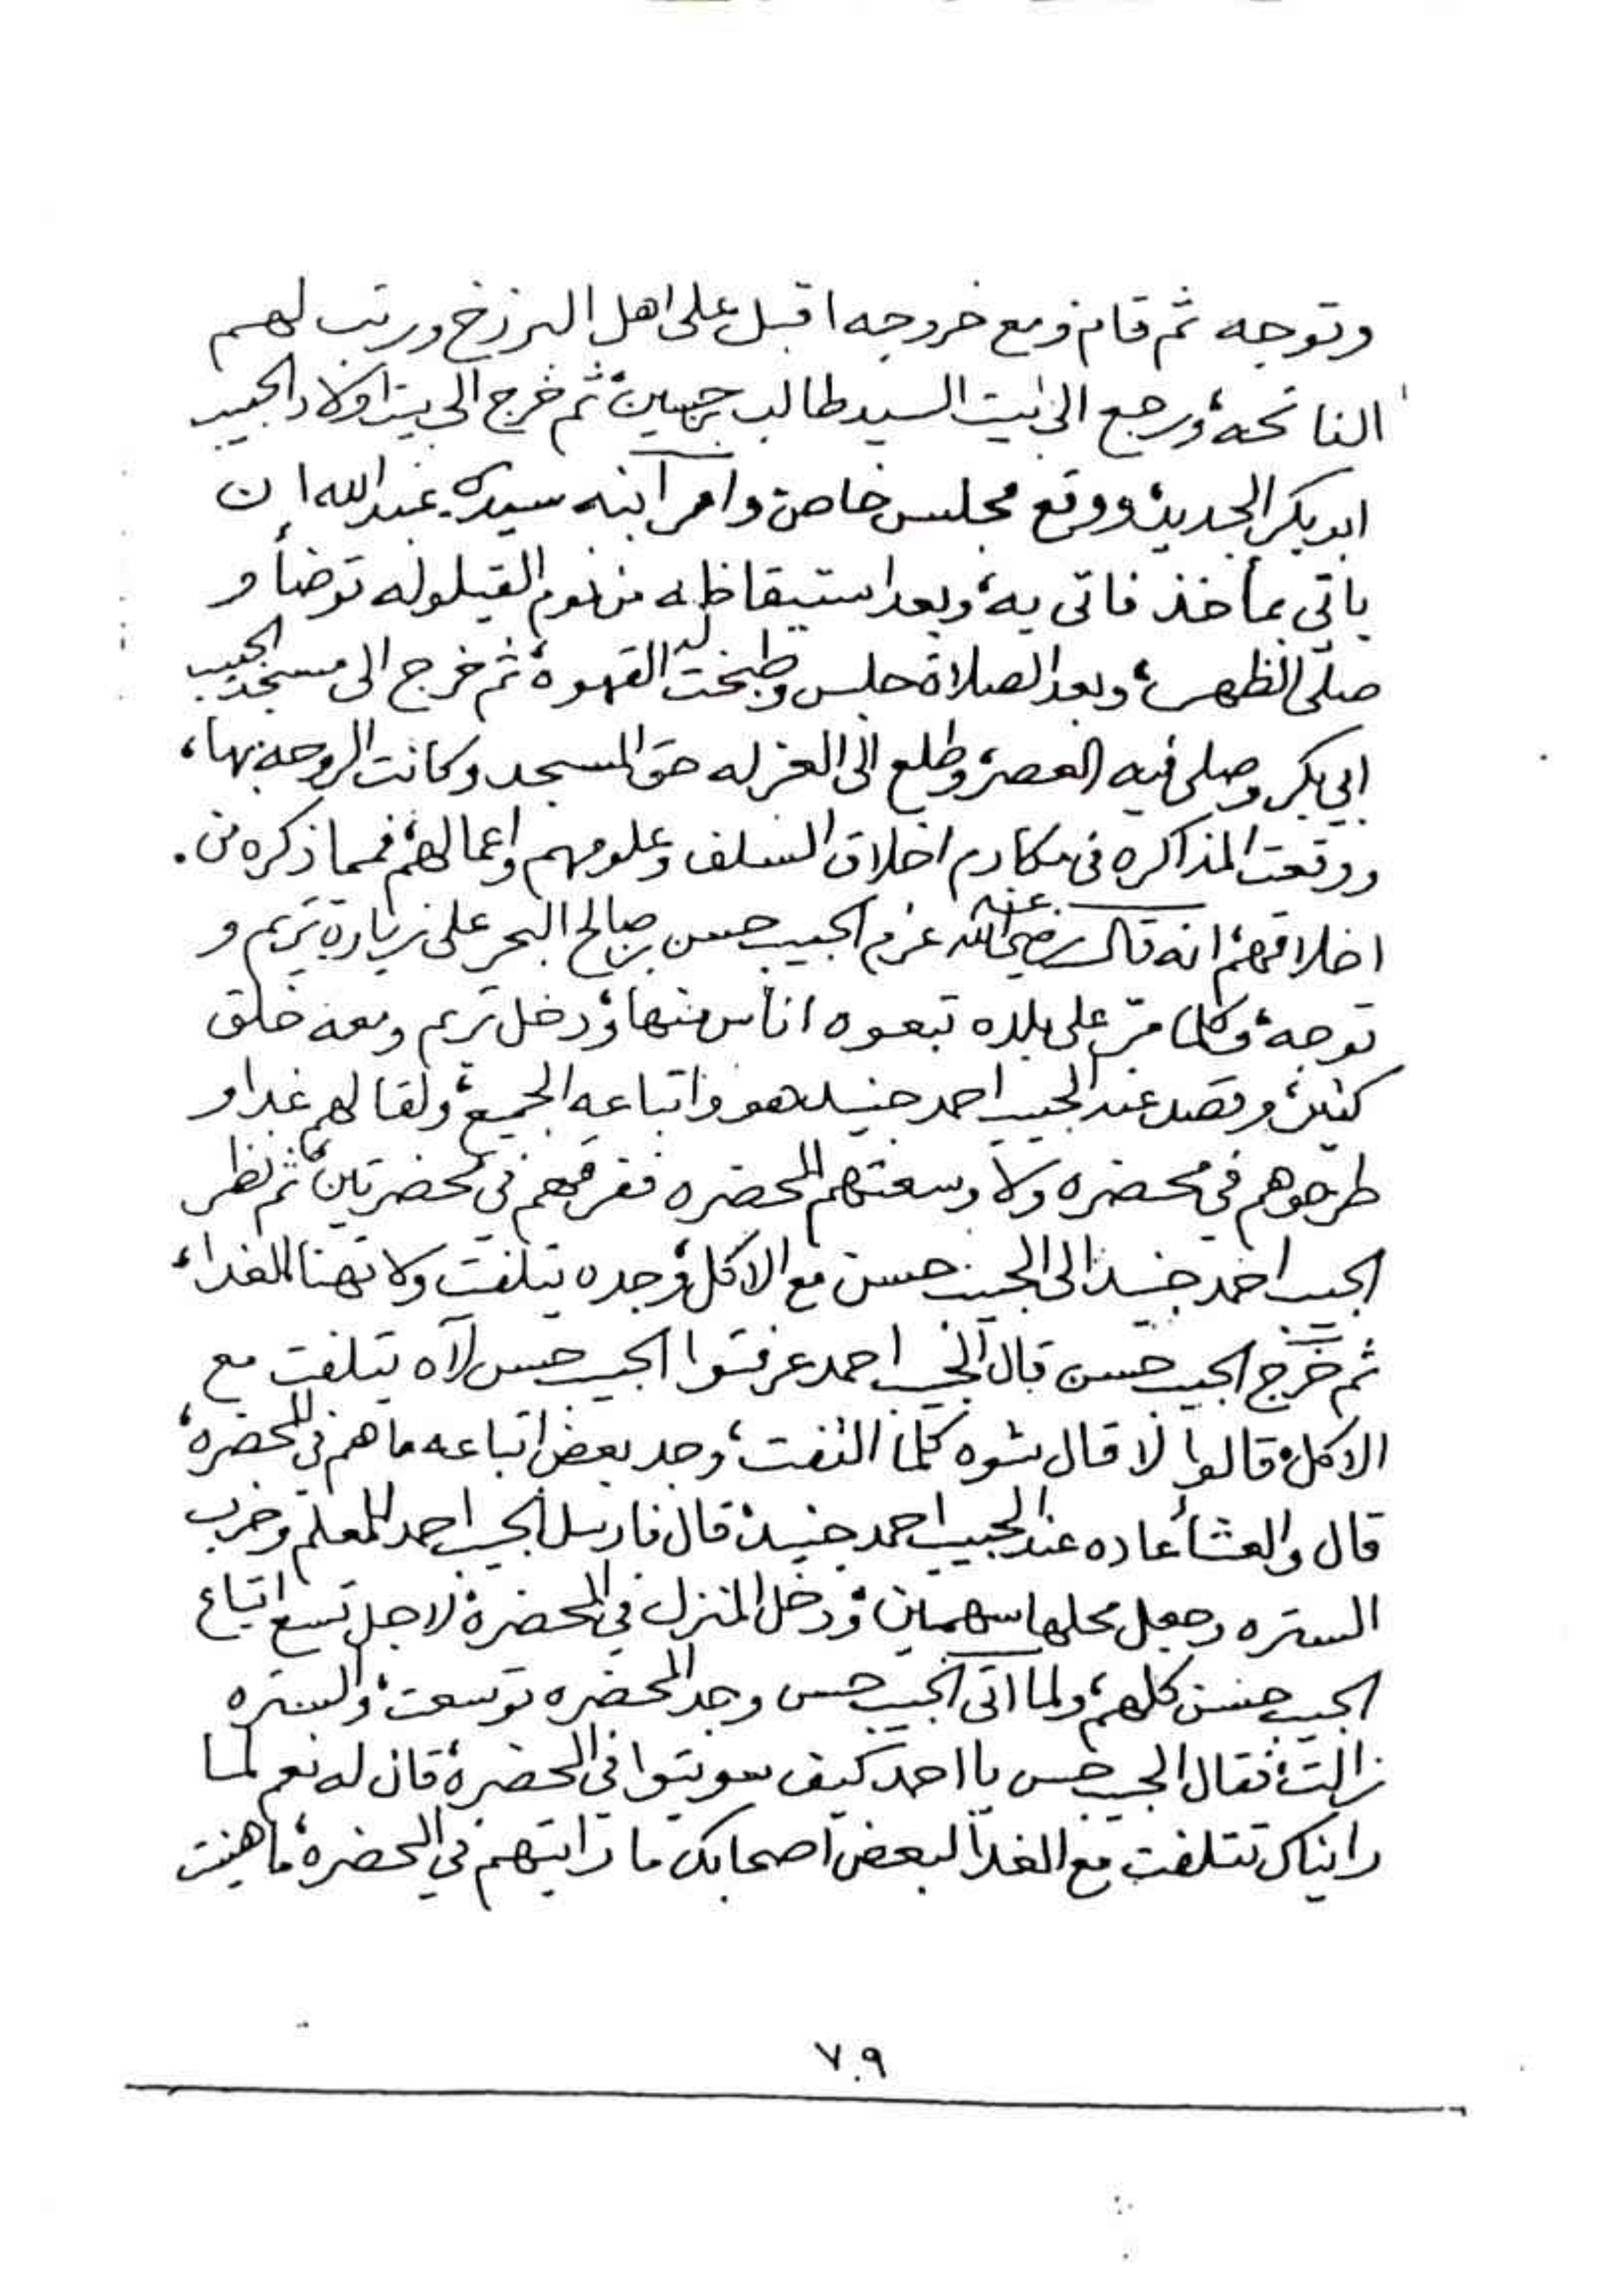 وتوجه ثم قام ومع خروجه اقبل على اهل البرزخ ورتب لهم
الفاتحه، ورجع الى بيت السيد طالب بن حسين، ثم خرج الى بيت اولاد الحبيب
ابو بكر الجديد، ووقع مجلس خاص، وامر ابنه سيدي عبد الله ان
ياتي بمأخذ فاتى به، وبعد استيقاظه من نوم القيلوله توضأ و
صلّى الظهر، وبعد الصلاة جلس وطبخت له القهوة، ثم خرج الى مسجد الحبيب
ابي بكر وصلى فيه العصر، وطلع الى العزله حق المسجد وكانت الروحه بها،
ووقعت المذاكره في مكارم اخلاق السلف وعلومهم واعمالهم، فمما ذكره من
اخلاقهم، انه قال رضي الله عنه عزم الحبيب حسن بن صالح البحر على زيارة تريم و
توجه، وكلما مرّ على بلده تبعوه اناس منها، ودخل تريم ومعه خلق
كثير، وقصد عند الحبيب احمد جنيد هو واتباعه الجميع، ولقا لهم غدا و
طرحوهم في محضره ولا وسعتهم المحضره ففرقهم في محضرتين، ثم نظر
الحبيب احمد جنيد الى الحبيب حسن مع الاكل، وجده يتلفت ولا تهنا الغداء،
ثم خرج الحبيب حسن قال الحبيب احمد عرفتوا الحبيب حسن لآه يتلفت مع
الاكل، قالوا لا قال شوه كلما التفت، وجد بعض اتباعه ما هم في المحضره،
قال والعشأ عاده عند الحبيب احمد جنيد، قال فارسل الحبيب احمد للمعلم وخرب
الستره وجعل محلها سهمين، ودخل المنزل في المحضرة، لاجل تسع اتباع
الحبيب حسن كلهم، ولما اتى الحبيب حسن وجد المحضره توسعت، والستره
زالت، فقال الحبيب حسن يا احمد كيف سويتوا في المحضرة، قال له نعم لما
رايناك تتلفت مع الغدأ لبعض اصحابك ما رايتهم في المحضرة، ما هنيت
٧٠٩